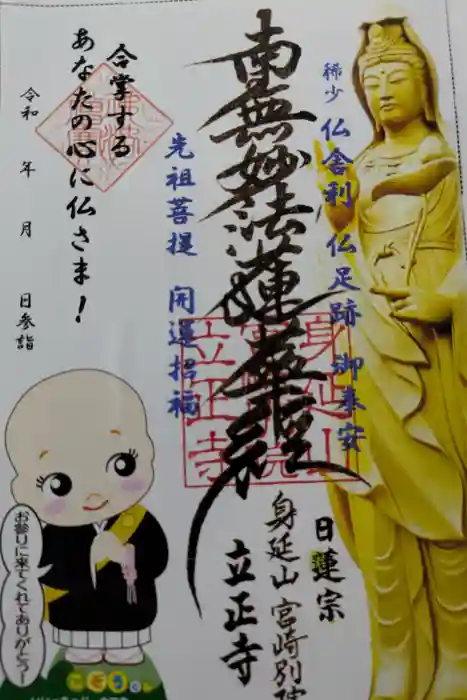 稀少 仏舎利 仏足跡 御奉安
南無妙法蓮華経
先祖菩提 開運招福
合掌する
あなたの心に仏さま！
令和 年 月 日参詣
身延山
立正寺
日蓮宗
身延山 宮崎別院
立正寺
お参りに来てくれてありがとう！
こぞうくん